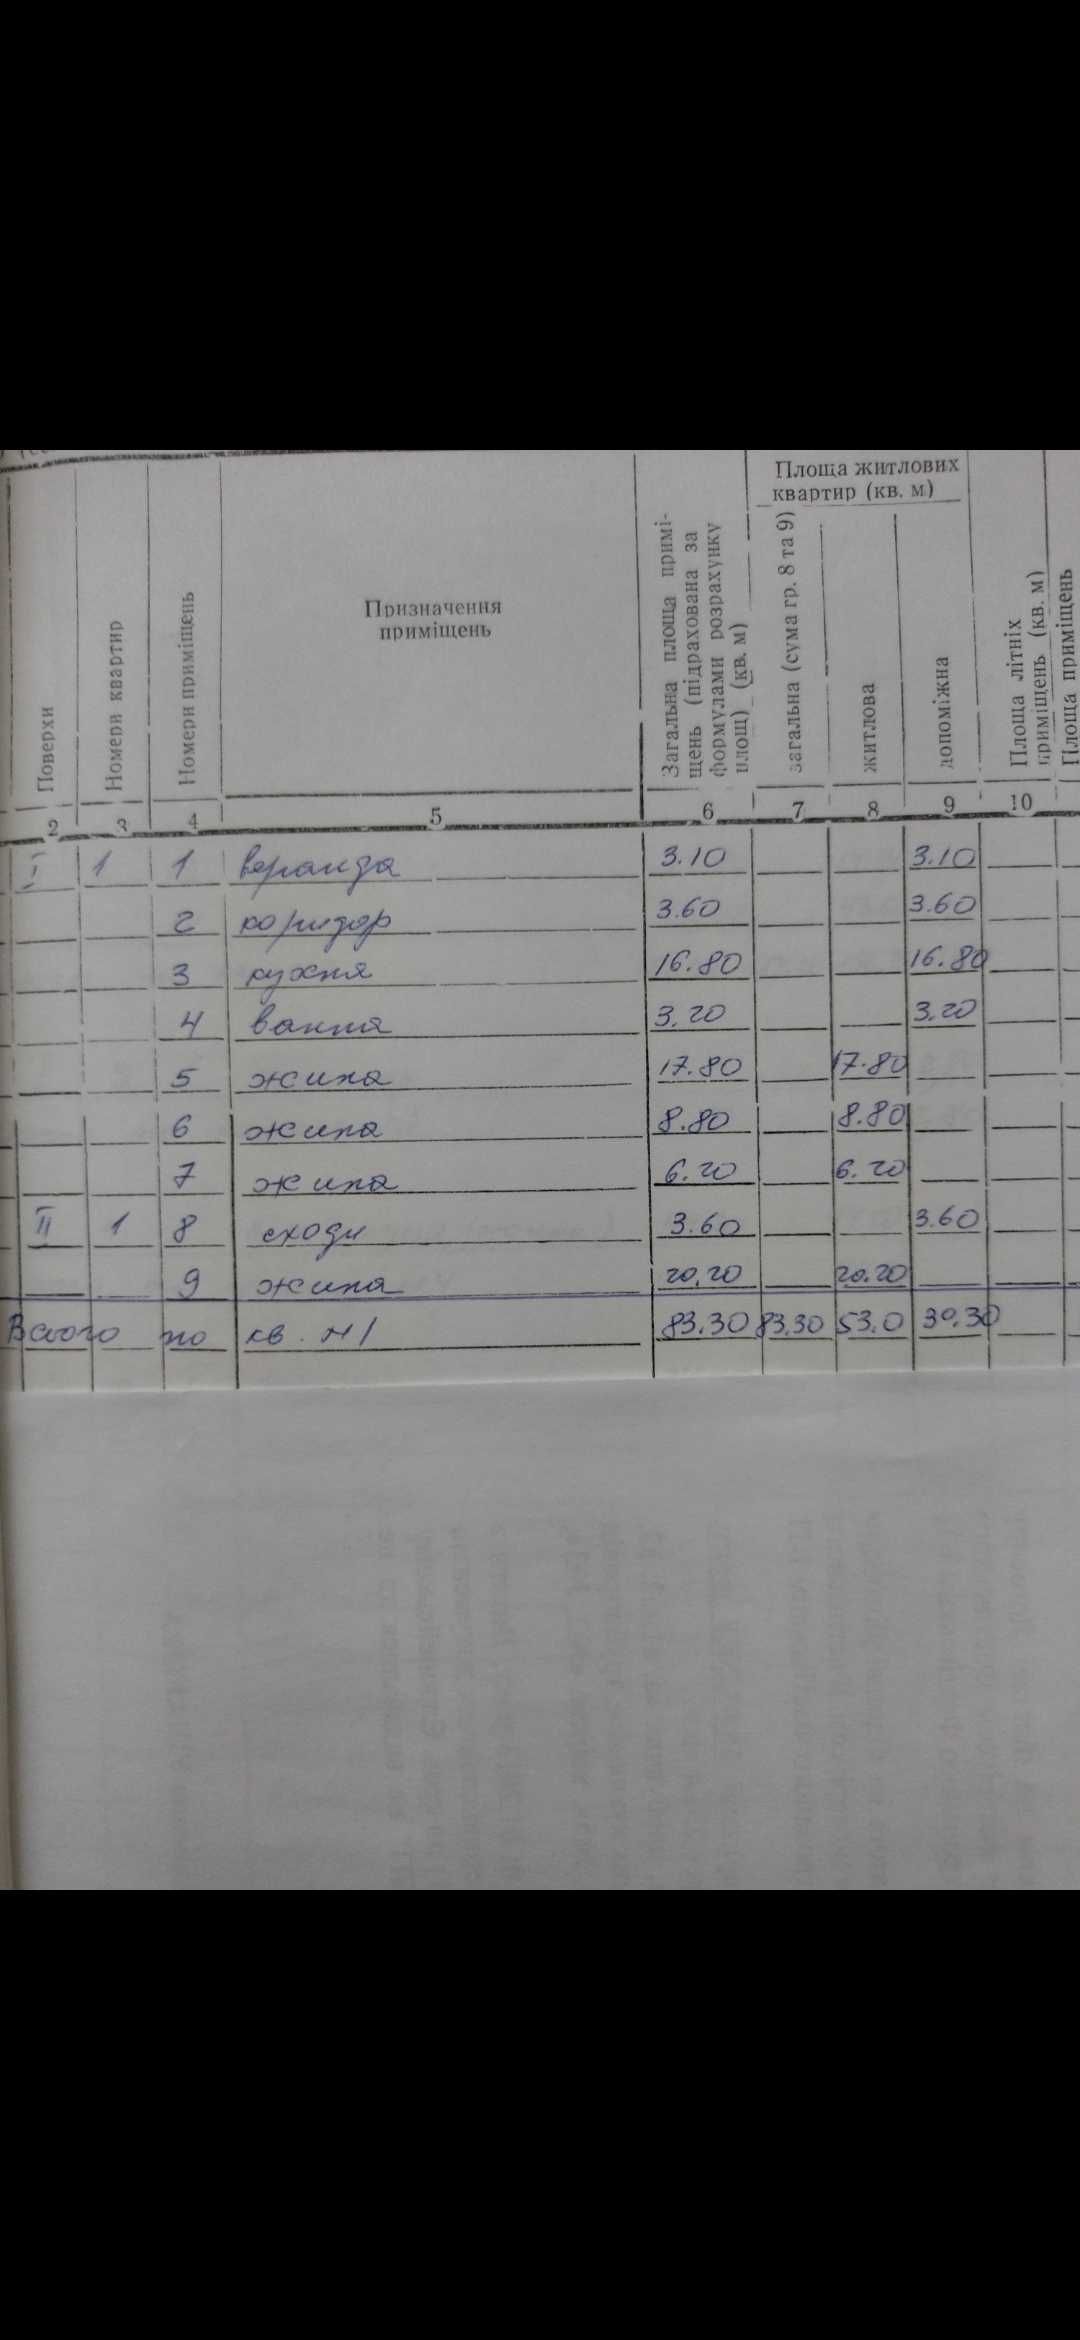 Площа житлових
квартир (кв. м)
Поверхи
Номери квартир
Номери приміщень
Призначення
приміщень
Загальна площа примі-
щень (підрахована за
формулами розрахунку
площ) (кв. м)
загальна (сума гр. 8 та 9)
житлова
допоміжна
Площа літніх
приміщень (кв. м)
Площа приміщень
2 3 4 5 6 7 8 9 10
I 1 1 веранда 3.10 3.10
2 коридор 3.60 3.60
3 кухня 16.80 16.80
4 ванна 3.20 3.20
5 жила 17.80 17.80
6 жила 8.80 8.80
7 жила 6.20 6.20
II 1 8 сходи 3.60 3.60
9 жила 20.20 20.20
Всього по кв. N1 83.30 83.30 53.0 30.30